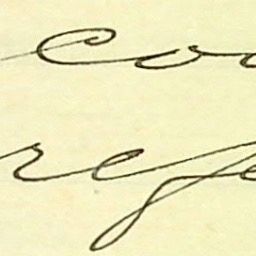 coo
refe